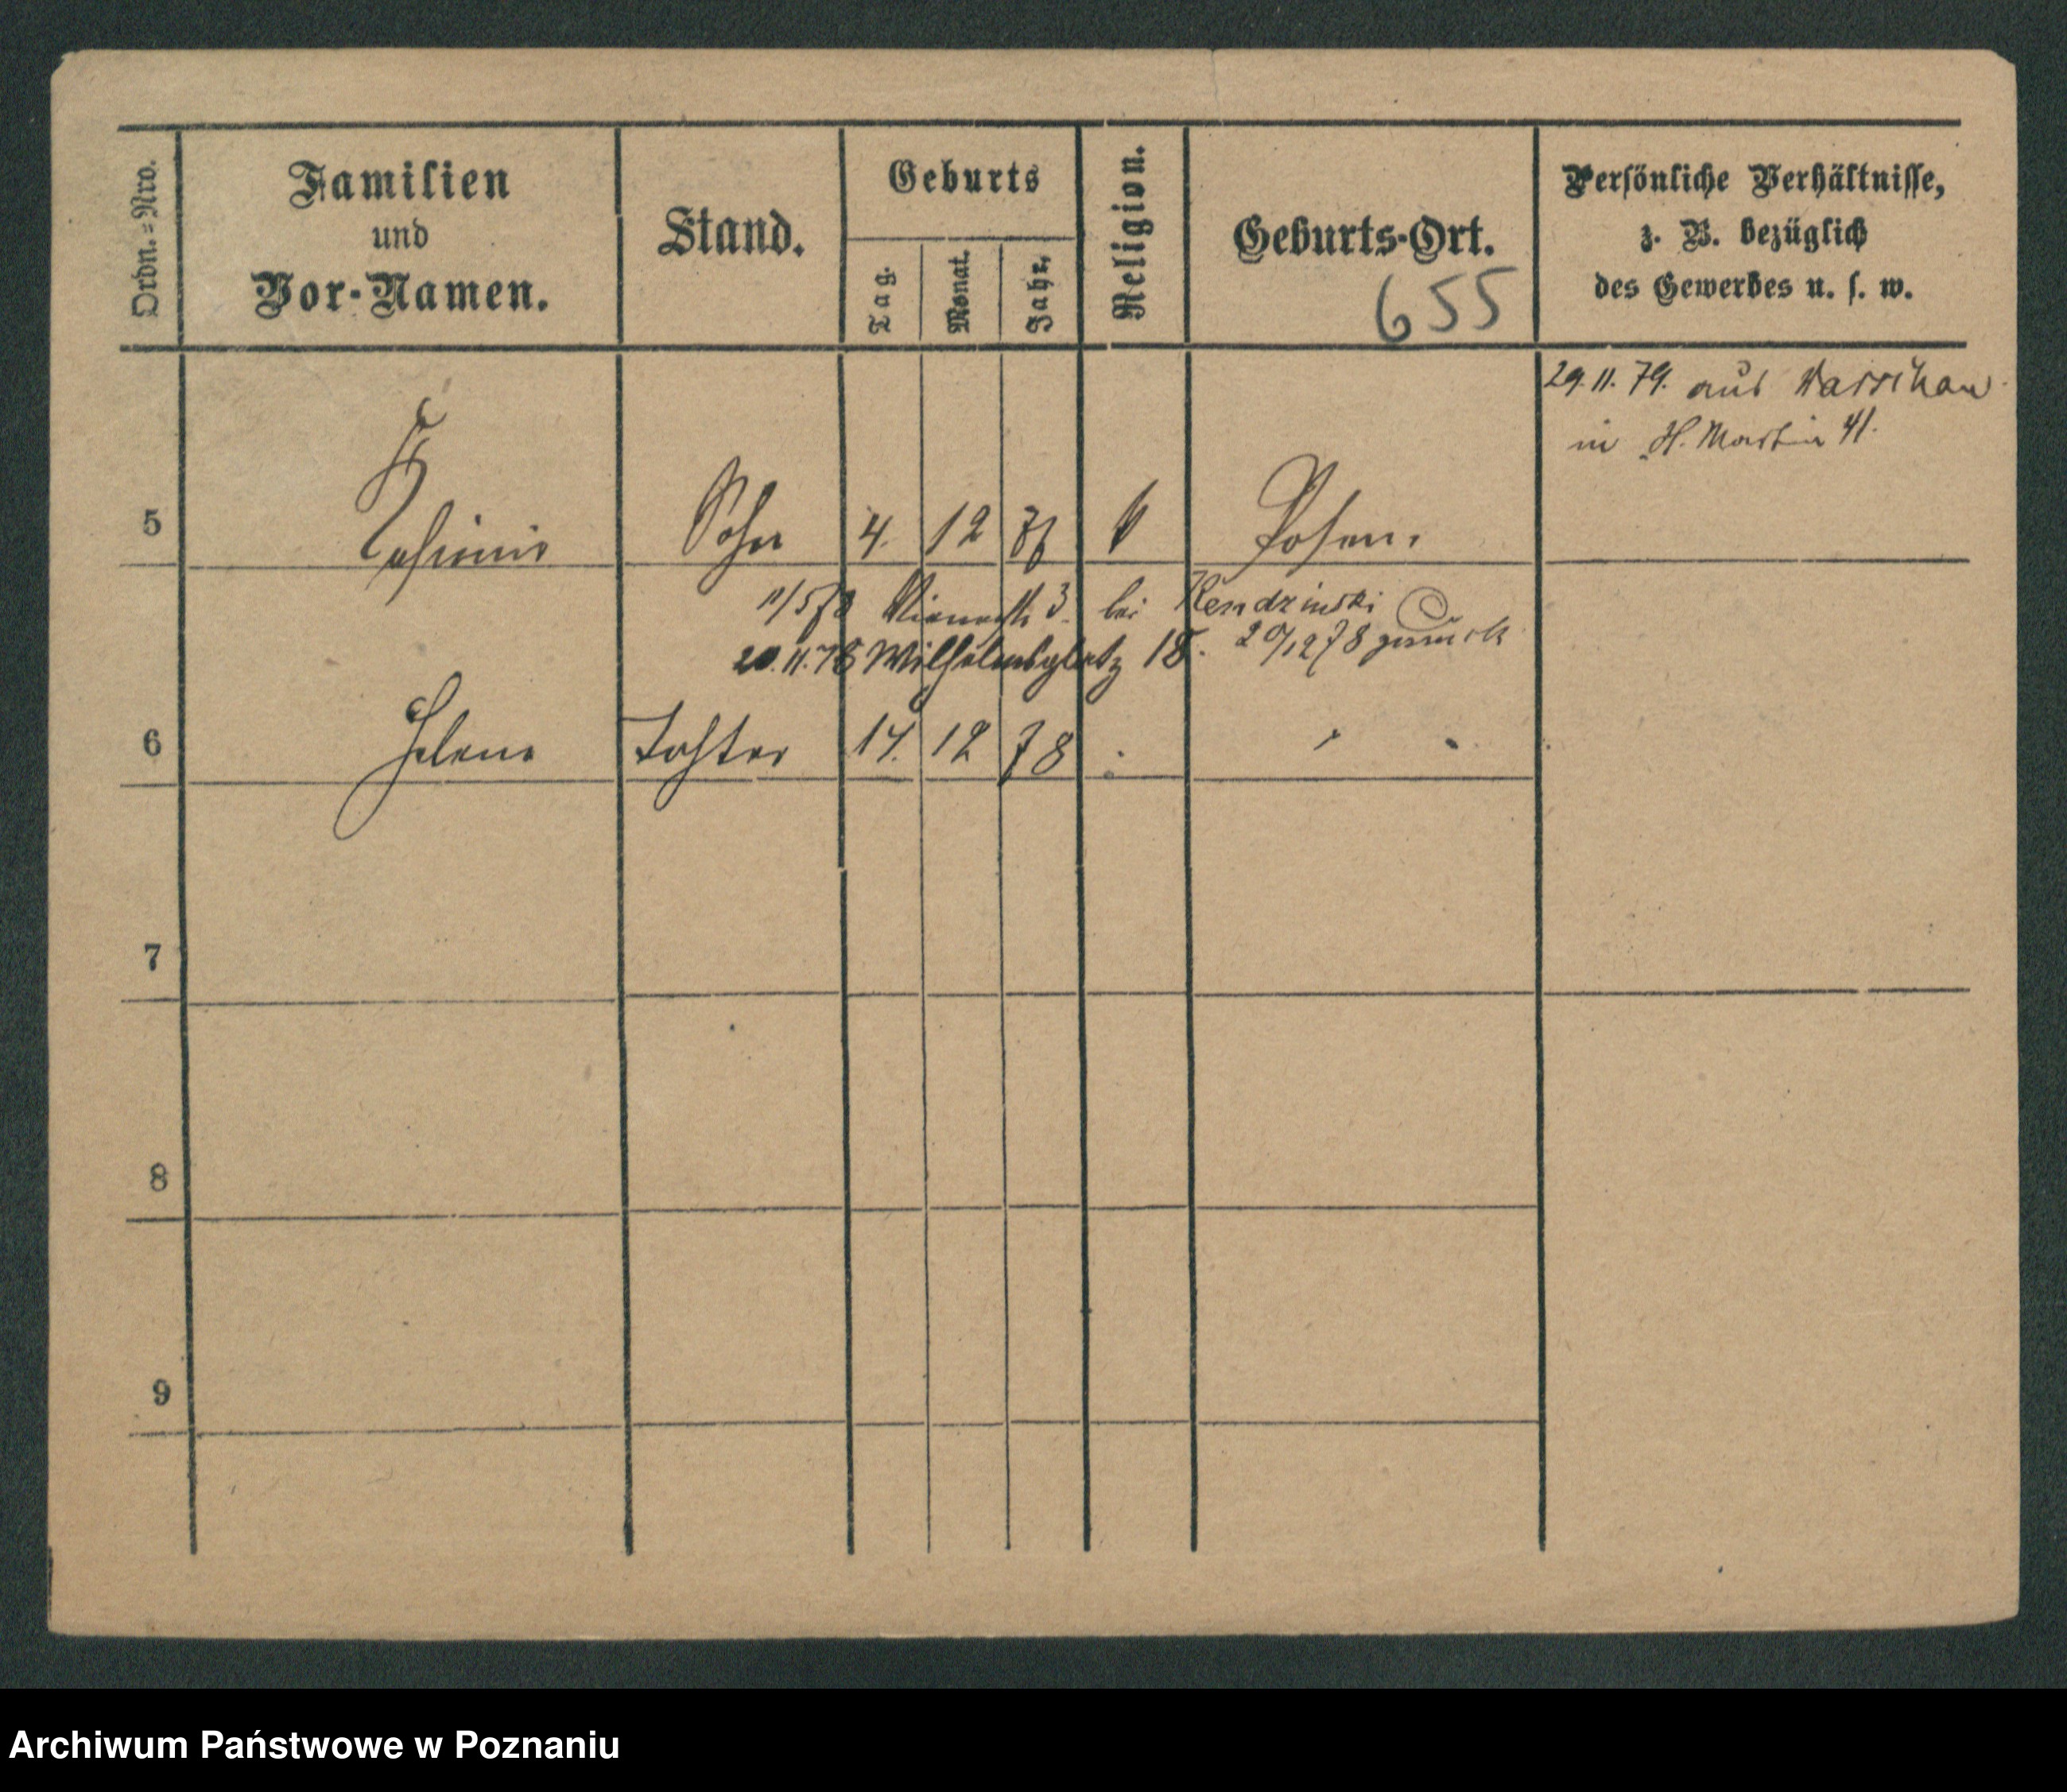 Ordn.-Nro.
Familien
und
Vor-Namen.
Stand.
Geburts
Tag.
Monat.
Jahr.
Religion.
Geburts-Ort.
655
Persönliche Verhältnisse,
z. B. bezüglich
des Gewerbes u. s. w.
29.11.79. aus Warschau
in St. Martin 41.
5 Casimir Sohn 4. 12 Posen.
11/5 78 3. bei Kendzinski
20.11.78 Wilhelmsplatz 18. 20/12 78 zurück
6 Helene Tochter 14. 12 78
7
8
9
Archiwum Państwowe w Poznaniu